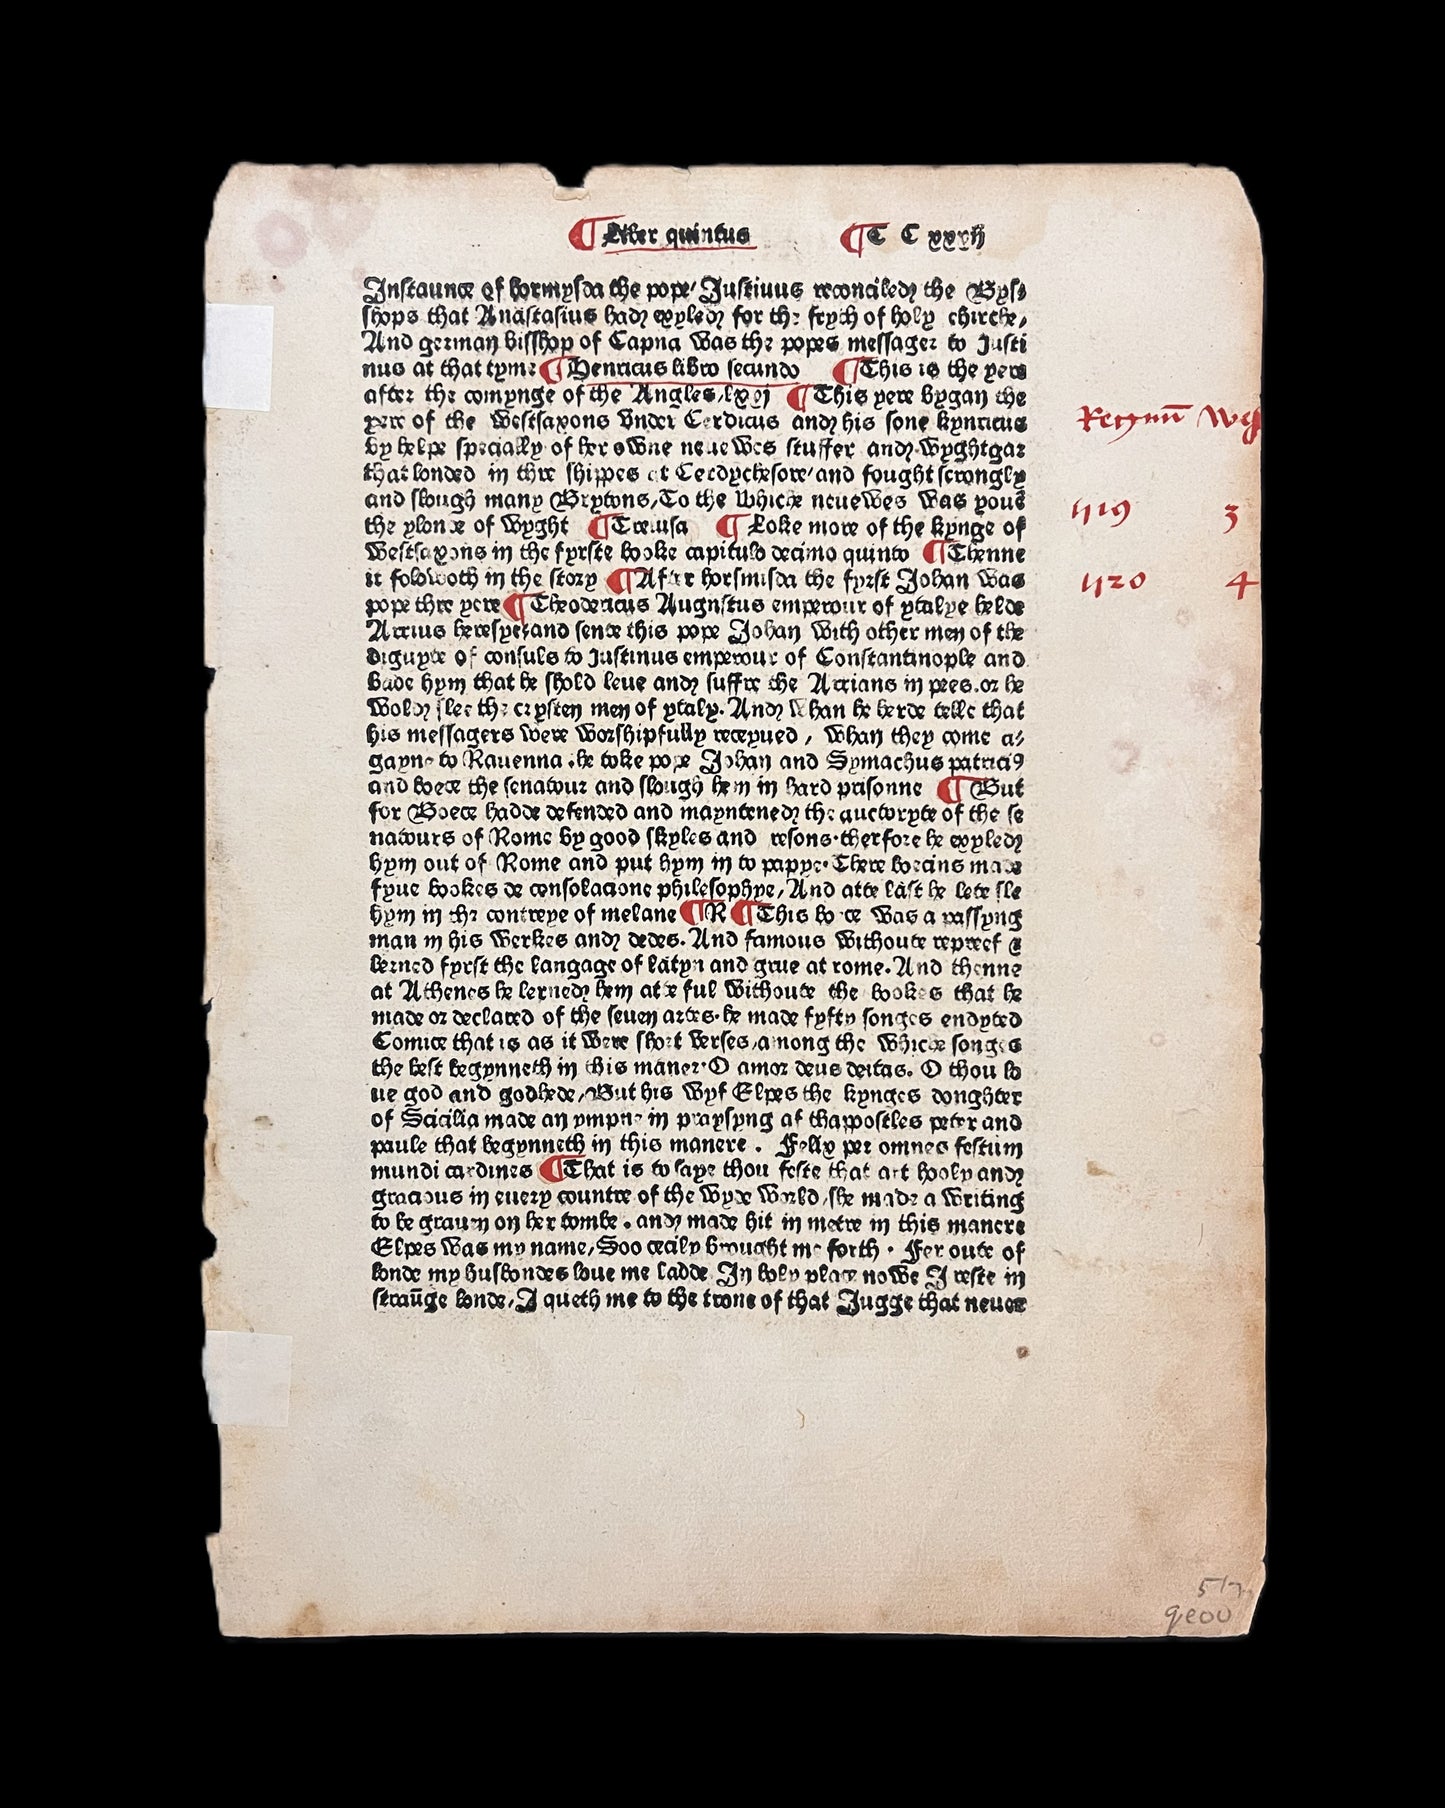 ¶ Liber quintus ¶ C C xxxii
Instaunce of hormysda the pope/ Justinus reconciled the Bys⸗
shops that Anastasius had exyled for the feyth of holy chirche,
And german bisshop of Capua was the popes messager to Justi
nus at that tyme ¶ Henricus libro secundo ¶ This is the yere
after the comynge of the Angles, lxxi ¶ This yere bygan the
yere of the Westsaxons vnder Cerdicus and his sone kynricus
by helpe specially of her owne neuewes stuffer and wyghtgar
that londed in thre shippes at Cerdychesore/ and fought strongly
and slough many Brytons, To the whiche neuewes was youē
the ylonde of wyght ¶ Treuisa ¶ Loke more of the kynge of
westsaxons in the fyrste booke capitulo decimo quinto ¶ Thenne
it foloweth in the story ¶ After horsmisda the fyrst Johan was
pope thre yere ¶ Theodericus Augustus emperour of ytalye helde
Arrius heresye, and sente this pope Johan with other men of the
dignyte of consuls to Justinus emperour of Constantinople and
bade hym that he shold leue and suffre the Arrians in pees. or he
wold slee the crysten men of ytaly. And whan he herde telle that
his messagers were worshipfully receyued, whan they come a⸗
gayne to Rauenna . he toke pope Johan and Symachus patriciꝰ
and boece the senatour and slough hem in hard prisonne ¶ But
for Boece hadde defended and mayntened the auctoryte of the se
natours of Rome by good skyles and resons. therfore he exyled
hym out of Rome and put hym in to papye. There boecius made
fyue bookes de consolacione philosophye, And atte last he lete sle
hym in the contreye of melane ¶ R ¶ This boece was a passyng
man in his werkes and dedes. And famous withoute repreef &
lerned fyrst the langage of latyn and grue at rome. And thenne
at Athenes he lerned hem atte ful withoute the bookes that he
made or declared of the seuen artes. he made fyfty songes endyted
Comice that is as it were short verses, among the whiche songes
the best begynneth in this maner. O amor deus deitas. O thou lo
ue god and godhede, But his wyf Elpes the kynges doughter
of Scicilia made an ympne in praysyng of thappostles peter and
paule that begynneth in this manere . Felix per omnes festum
mundi cardines ¶ That is to saye thou feste that art hooly and
gracious in euery countre of the wyde world, she made a writing
to be grauen on her tombe . and made hit in metre in this manere
Elpes was my name, Soo cecily brought me forth . Fer oute of
londe my husbondes loue me ladde. In holy place nowe I reste in
straūge londe, I queth me to the trone of that Jugge that neuer
Regnū Wess
519 3
520 4